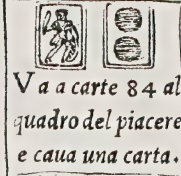 Va a carte 84 al
quadro del piacere
e caua una carta.